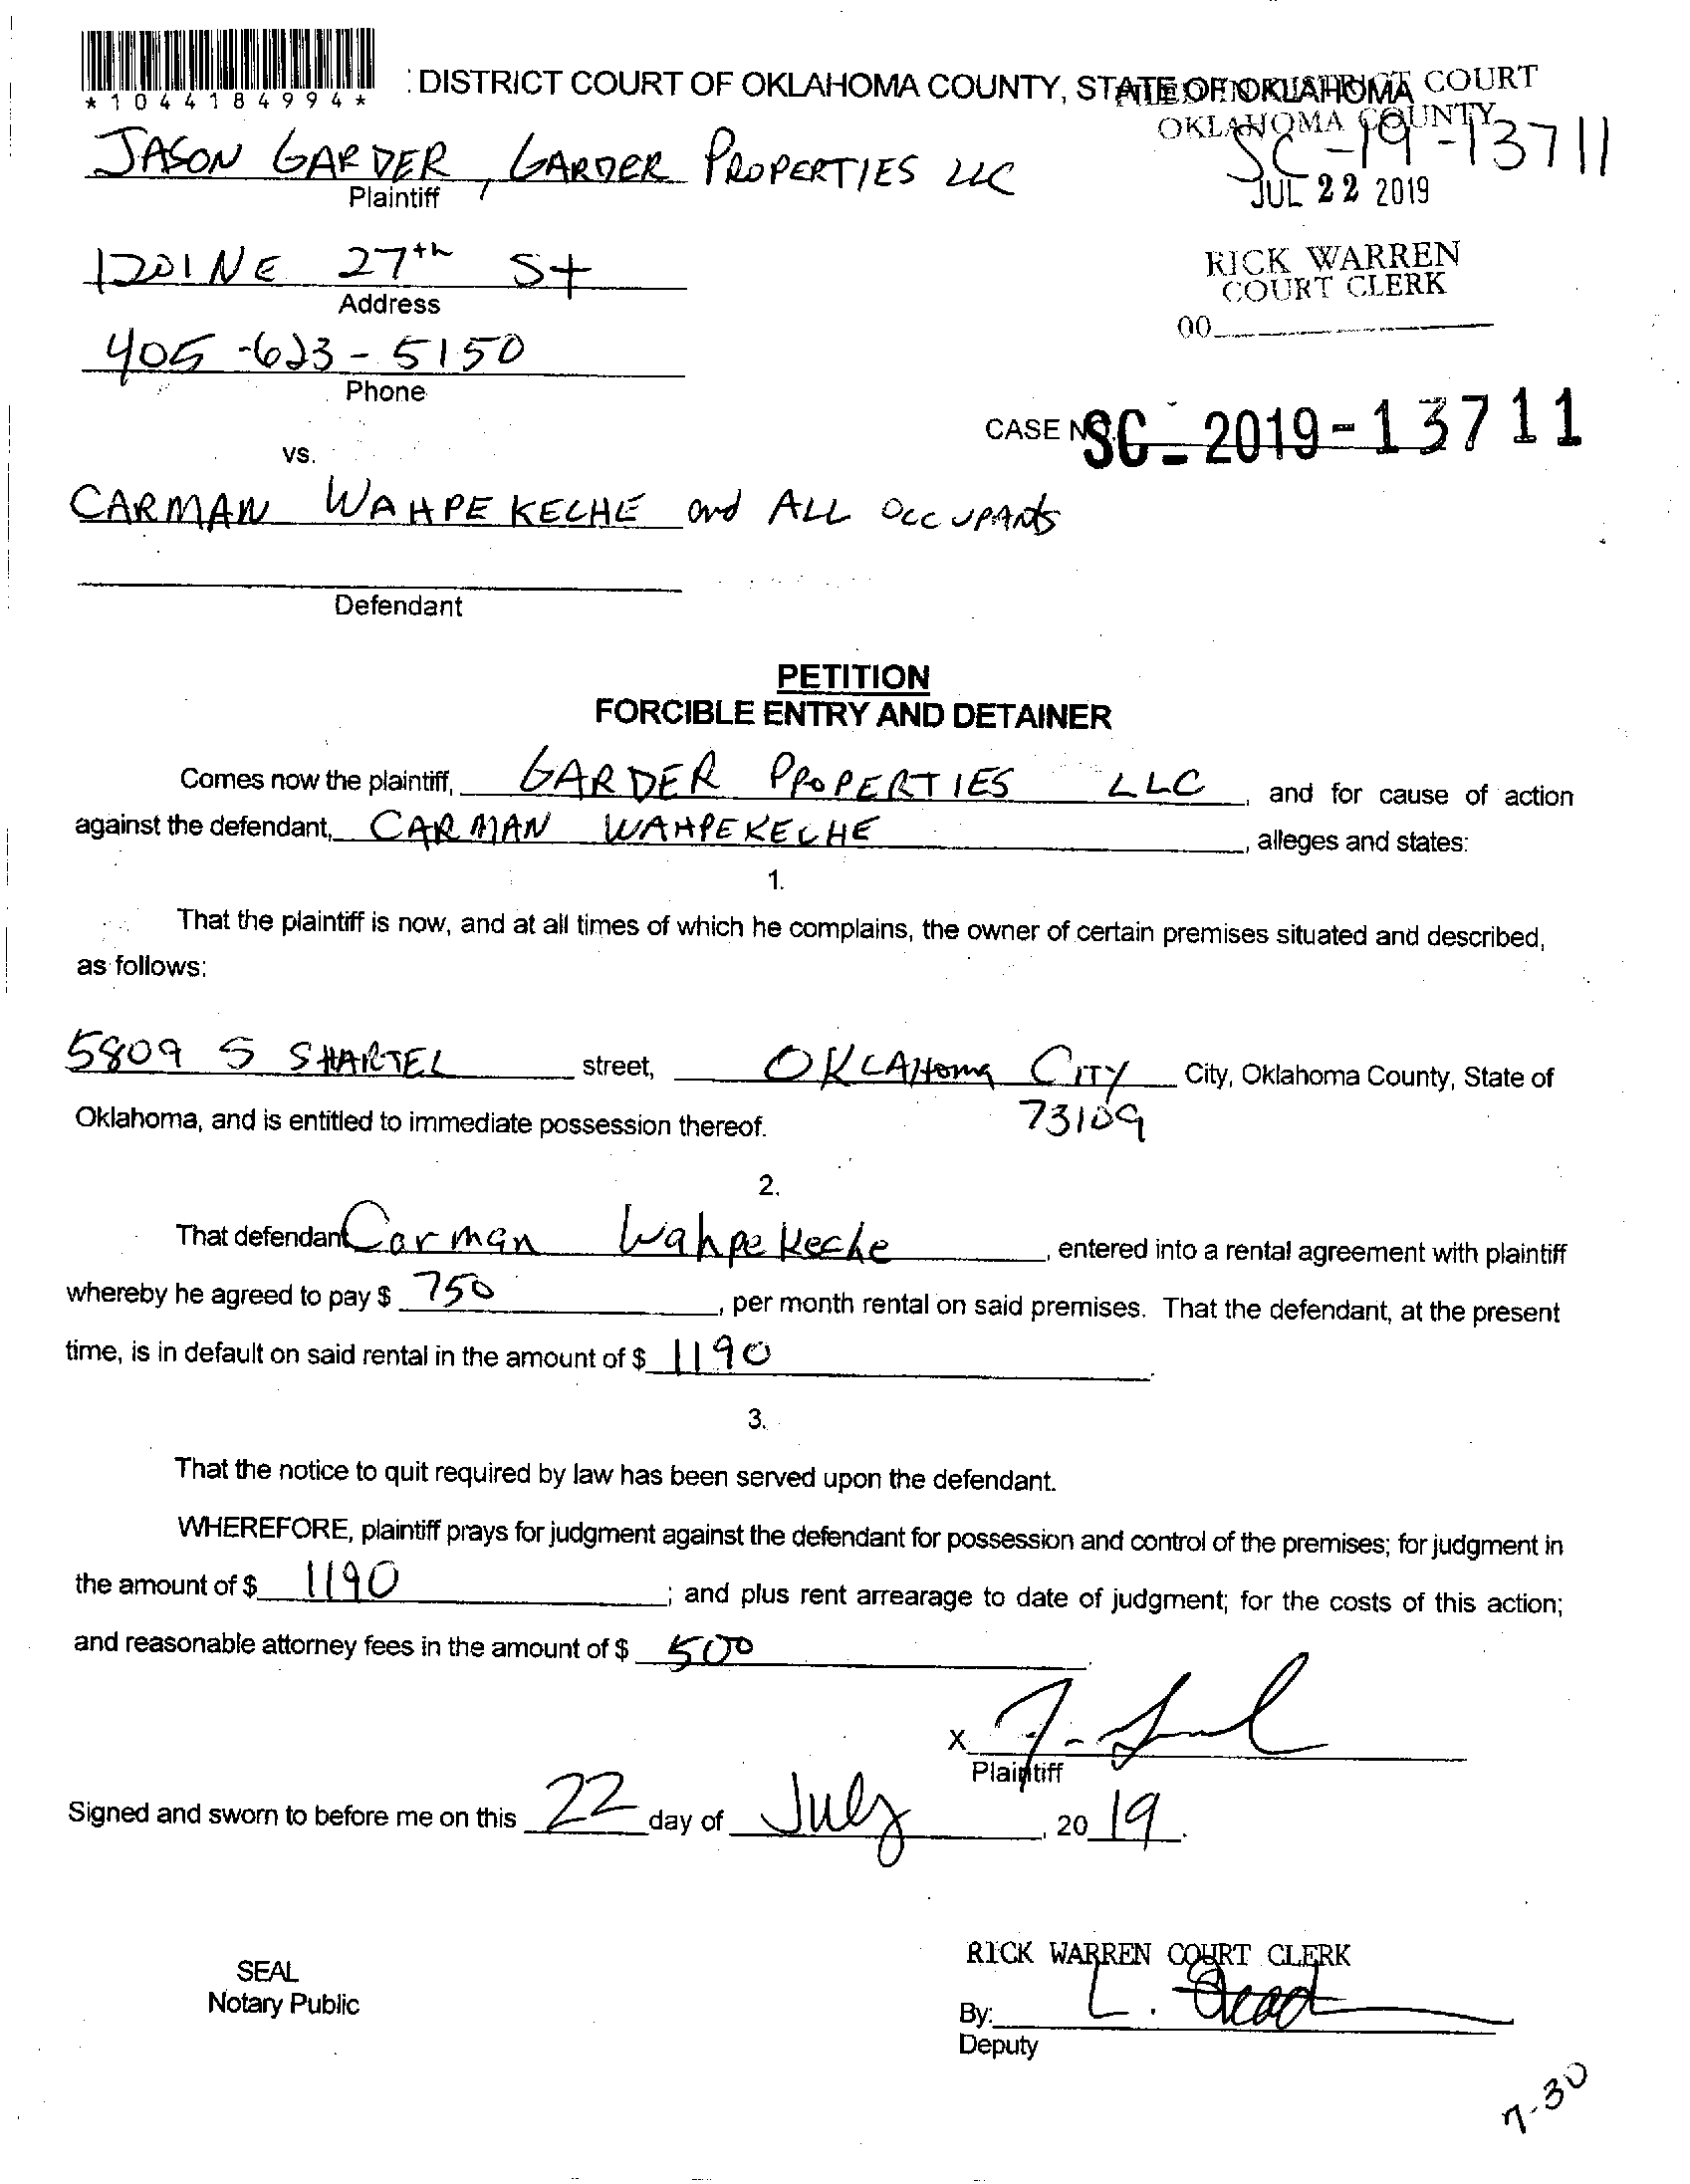 *1044184994*
DISTRICT COURT OF OKLAHOMA COUNTY, STATE OF OKLAHOMA
COURT
OKLAHOMA COUNTY
SC-19-13711
JASON GARDER, GARDER PROPERTIES LLC
Plaintiff
JUL 22 2019
1201 NE 27th St
Address
RICK WARREN
COURT CLERK
00
405-623-5150
Phone
CASE NO. SC-2019-13711
vs.
CARMAN WAHPEKECHE and ALL OCCUPANTS
Defendant
PETITION
FORCIBLE ENTRY AND DETAINER
Comes now the plaintiff, GARDER PROPERTIES LLC, and for cause of action
against the defendant, CARMAN WAHPEKECHE, alleges and states:
1.
That the plaintiff is now, and at all times of which he complains, the owner of certain premises situated and described,
as follows:
5809 S SHARTEL street, OKLAHOMA CITY City, Oklahoma County, State of
73109
Oklahoma, and is entitled to immediate possession thereof.
2.
That defendant Carman Wahpekeche, entered into a rental agreement with plaintiff
whereby he agreed to pay $ 750, per month rental on said premises. That the defendant, at the present
time, is in default on said rental in the amount of $ 1190
3.
That the notice to quit required by law has been served upon the defendant.
WHEREFORE, plaintiff prays for judgment against the defendant for possession and control of the premises; for judgment in
the amount of $ 1190; and plus rent arrearage to date of judgment; for the costs of this action;
and reasonable attorney fees in the amount of $ 500.
X
Plaintiff
Signed and sworn to before me on this 22 day of July, 20 19.
SEAL
Notary Public
RICK WARREN COURT CLERK
By: L.
Deputy
7-30